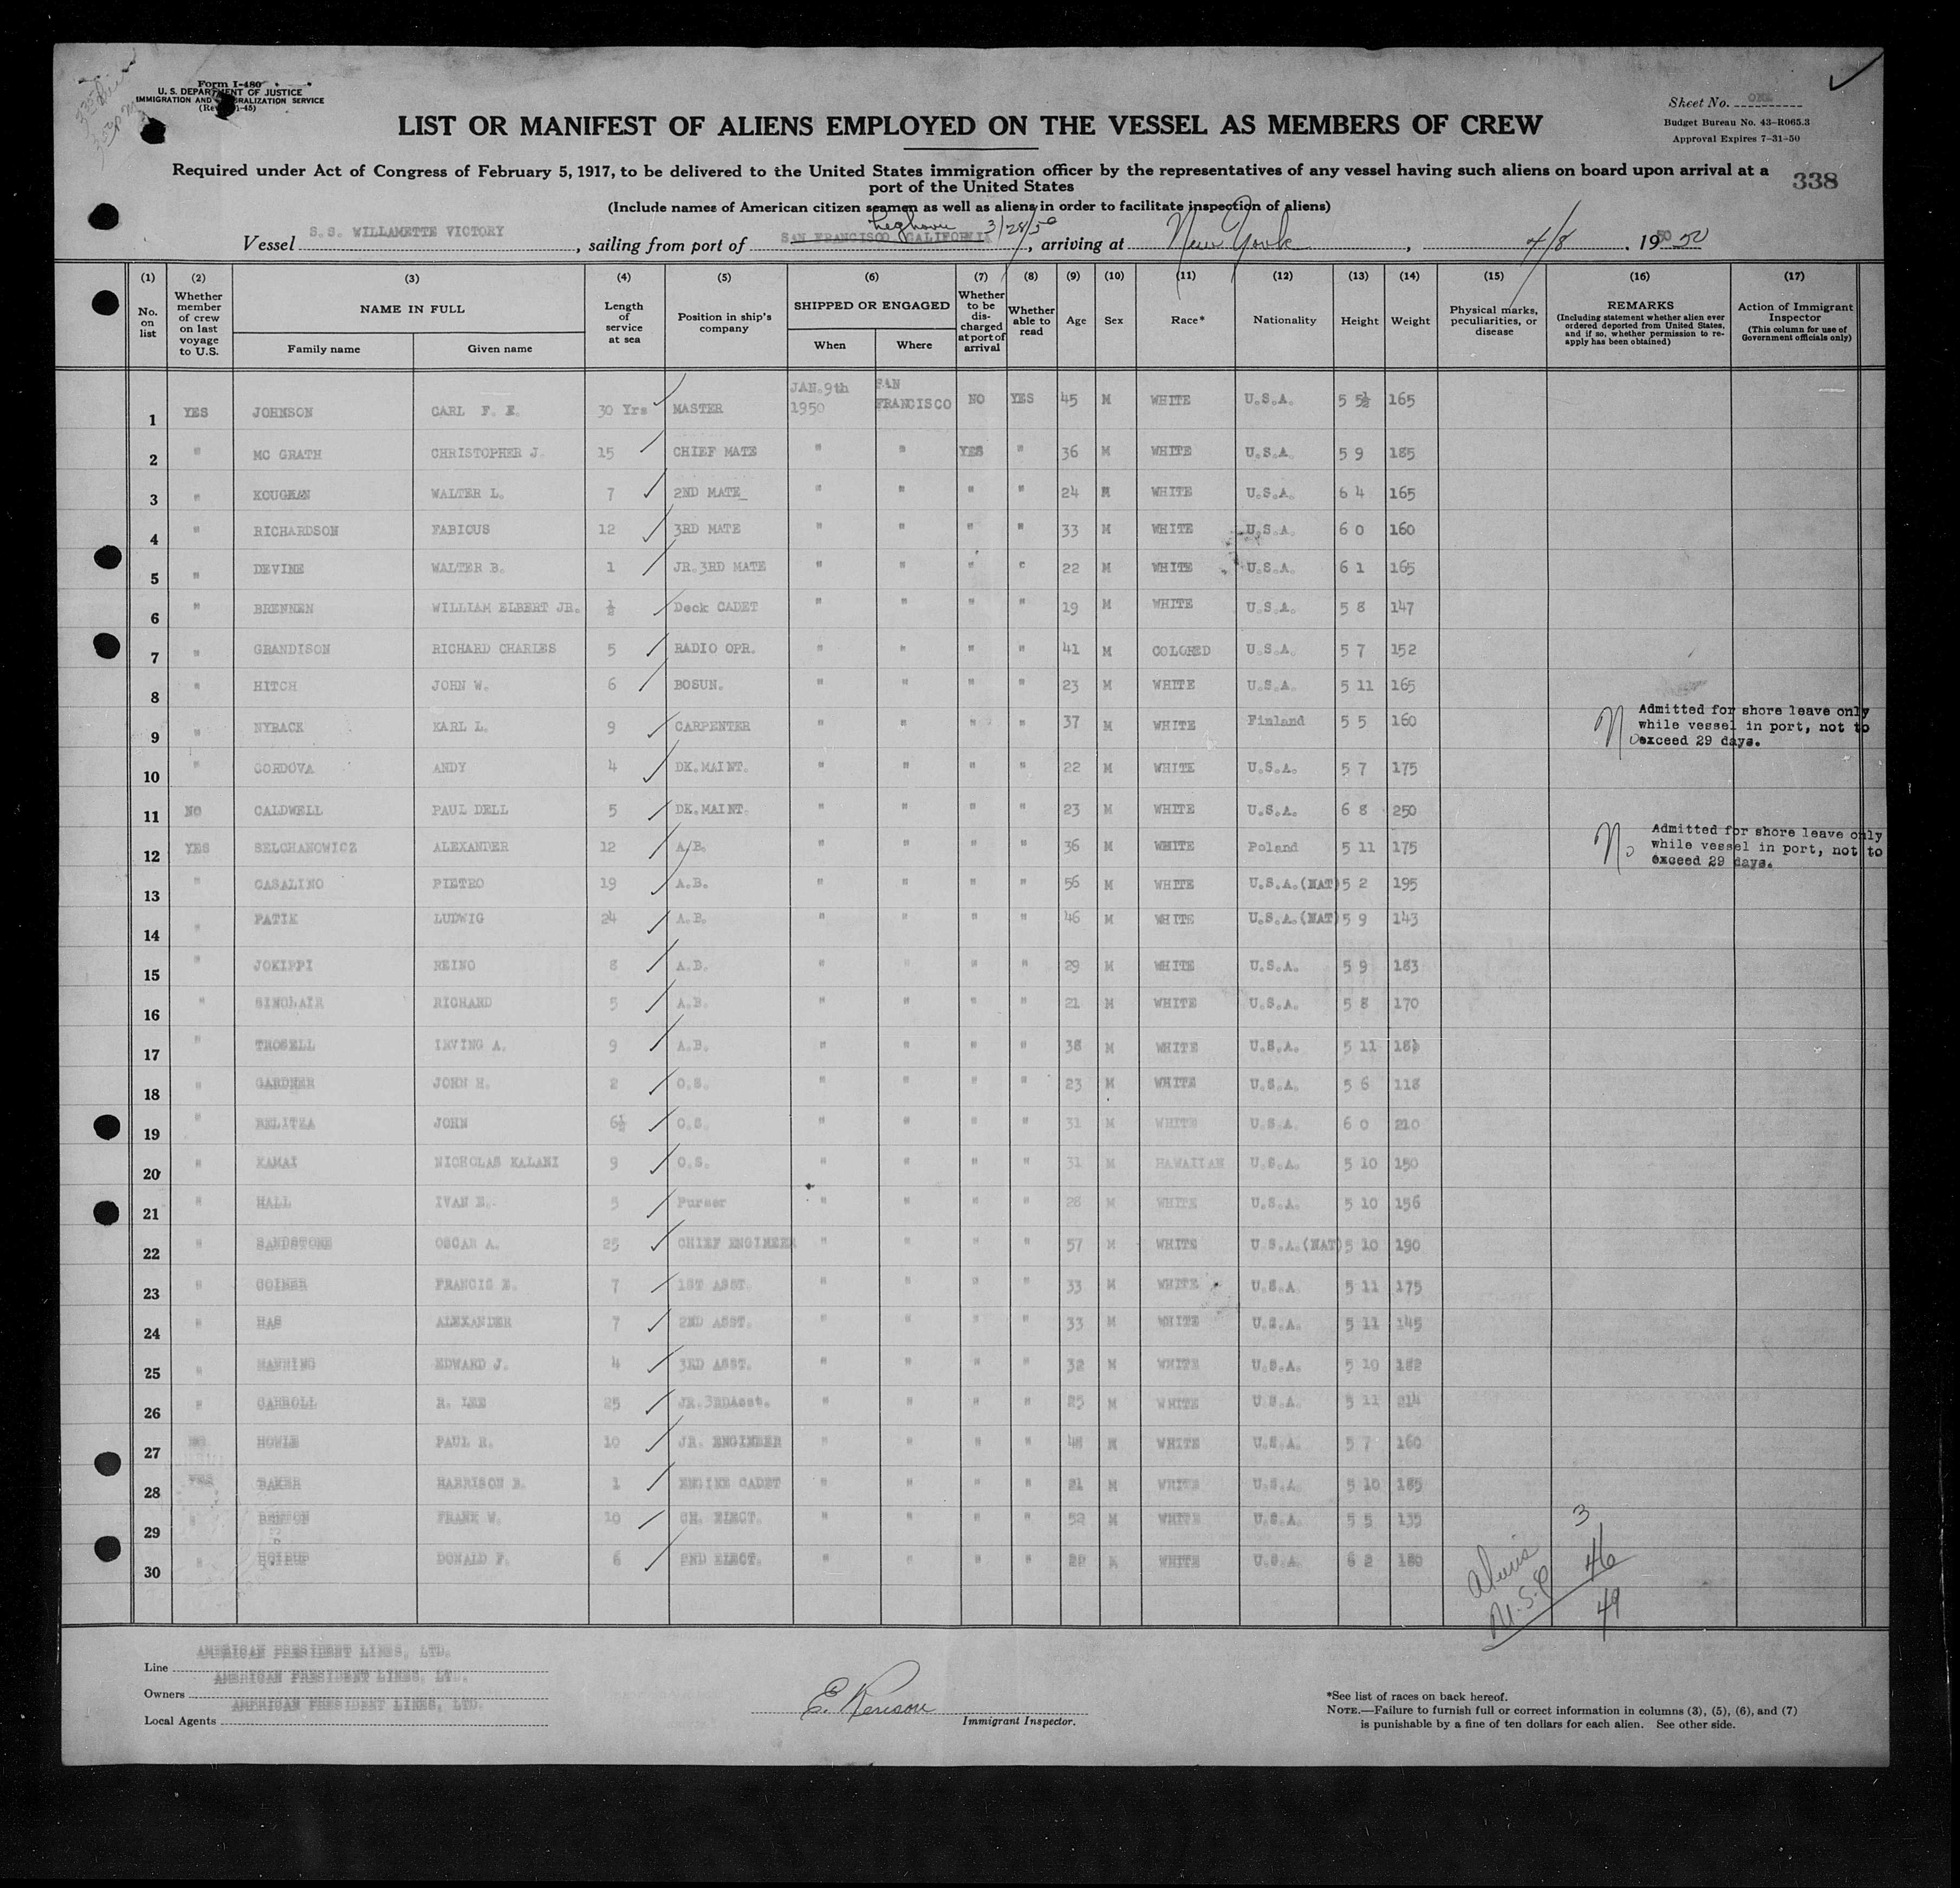 Form I-480
U. S. DEPARTMENT OF JUSTICE
IMMIGRATION AND NATURALIZATION SERVICE
Sheet No. ONE
Budget Bureau No. 43-R065.3
Approval Expires 7-31-50
LIST OR MANIFEST OF ALIENS EMPLOYED ON THE VESSEL AS MEMBERS OF CREW
Required under Act of Congress of February 5, 1917, to be delivered to the United States immigration officer by the representatives of any vessel having such aliens on board upon arrival at a
port of the United States
338
(Include names of American citizen seamen as well as aliens in order to facilitate inspection of aliens)
Leghorn 3/28/50
Vessel S.S. WILLAMETTE VICTORY, sailing from port of SAN FRANCISCO CALIFORNIA, arriving at New York, 4/8, 1950 50
(1) (2) (3) (4) (5) (6) (7) (8) (9) (10) (11) (12) (13) (14) (15) (16) (17)
No. on list
Whether member of crew on last voyage to U.S.
NAME IN FULL
Family name
Given name
Length of service at sea
Position in ship's company
SHIPPED OR ENGAGED
When
Where
Whether to be discharged at port of arrival
Whether able to read
Age
Sex
Race*
Nationality
Height
Weight
Physical marks, peculiarities, or disease
REMARKS
(Including statement whether alien ever ordered deported from United States, and if so, whether permission to re-apply has been obtained)
Action of Immigrant Inspector
(This column for use of Government officials only)
1 YES JOHNSON CARL F. E. 30 Yrs MASTER JAN.9th 1950 SAN FRANCISCO NO YES 45 M WHITE U.S.A. 5 5½ 165
2 " MC GRATH CHRISTOPHER J. 15 CHIEF MATE " " YES " 36 M WHITE U.S.A. 5 9 185
3 " KOUGHAN WALTER L. 7 2ND MATE " " " " 24 M WHITE U.S.A. 6 4 165
4 " RICHARDSON FABIOUS 12 3RD MATE " " " " 33 M WHITE U.S.A. 6 0 160
5 " DEVINE WALTER B. 1 JR.3RD MATE " " " " 22 M WHITE U.S.A. 6 1 165
6 " BRENNEN WILLIAM ELBERT JR. ½ Deck CADET " " " " 19 M WHITE U.S.A. 5 8 147
7 " GRANDISON RICHARD CHARLES 5 RADIO OPR. " " " " 41 M COLORED U.S.A. 5 7 152
8 " HITCH JOHN W. 6 BOSUN. " " " " 23 M WHITE U.S.A. 5 11 165
9 " NYBACK KARL L. 9 CARPENTER " " " " 37 M WHITE Finland 5 5 160 No Admitted for shore leave only while vessel in port, not to exceed 29 days.
10 " CORDOVA ANDY 4 DK.MAINT. " " " " 22 M WHITE U.S.A. 5 7 175
11 NO CALDWELL PAUL DELL 5 DK.MAINT. " " " " 23 M WHITE U.S.A. 6 8 250
12 YES SELCHANOWICZ ALEXANDER 12 A.B. " " " " 36 M WHITE Poland 5 11 175 No Admitted for shore leave only while vessel in port, not to exceed 29 days.
13 " CASALINO PIETRO 19 A.B. " " " " 56 M WHITE U.S.A.(NAT) 5 2 195
14 " PATIK LUDWIG 24 A.B. " " " " 46 M WHITE U.S.A.(NAT) 5 9 143
15 " JOKIPPI REINO 8 A.B. " " " " 29 M WHITE U.S.A. 5 9 183
16 " SINCLAIR RICHARD 5 A.B. " " " " 21 M WHITE U.S.A. 5 8 170
17 " TROSELL IRVING A. 9 A.B. " " " " 38 M WHITE U.S.A. 5 11
18 " GARDNER JOHN H. 2 O.S. " " " " 23 M WHITE U.S.A. 5 6 118
19 " BELITZA JOHN 6½ O.S. " " " " 31 M WHITE U.S.A. 6 0 210
20 " KAMAI NICHOLAS KALANI 9 O.S. " " " " 31 M HAWAIIAN U.S.A. 5 10 150
21 " HALL IVAN E. 5 Purser " " " " 28 M WHITE U.S.A. 5 10 156
22 " SANDSTONE OSCAR A. 25 CHIEF ENGINEER " " " " 57 M WHITE U.S.A.(NAT) 5 10 190
23 " COINER FRANCIS E. 7 1ST ASST. " " " " 33 M WHITE U.S.A. 5 11 175
24 " HAS ALEXANDER 7 2ND ASST. " " " " 33 M WHITE U.S.A. 5 11 145
25 " MANNING EDWARD J. 4 3RD ASST. " " " " 32 M WHITE U.S.A. 5 10 182
26 " CARROLL R. LEE 25 JR.3RDAsst. " " " " 25 M WHITE U.S.A. 5 11 214
27 NO HOWLE PAUL R. 10 JR. ENGINEER " " " " 48 M WHITE U.S.A. 5 7 160
28 YES BAKER HARRISON B. 1 ENGINE CADET " " " " 21 M WHITE U.S.A. 5 10 185
29 " FRANK W. 10 CH. ELECT. " " " " 52 M WHITE U.S.A. 5 5 135
30 " DONALD F. 6 2ND ELECT. " " " " M WHITE U.S.A. 6 2 180
Aliens 3
U.S.C 46
49
Line AMERICAN PRESIDENT LINES, LTD.
Owners AMERICAN PRESIDENT LINES, LTD.
Local Agents AMERICAN PRESIDENT LINES, LTD.
E. Kenison
Immigrant Inspector.
*See list of races on back hereof.
NOTE.—Failure to furnish full or correct information in columns (3), (5), (6), and (7)
is punishable by a fine of ten dollars for each alien. See other side.